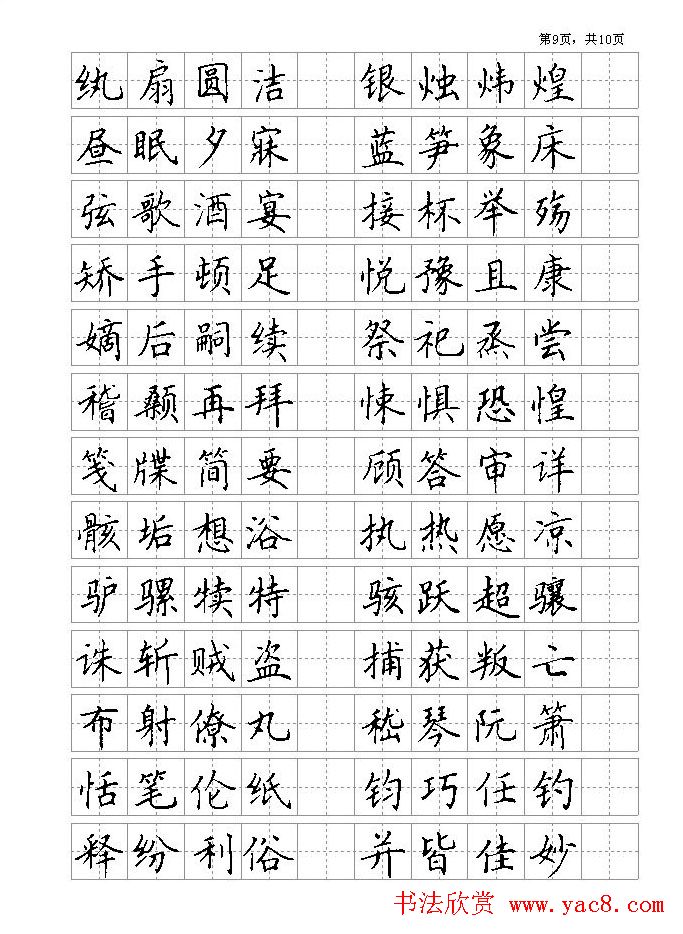 第9页，共10页
纨扇圆洁 银烛炜煌
昼眠夕寐 蓝笋象床
弦歌酒宴 接杯举殇
矫手顿足 悦豫且康
嫡后嗣续 祭祀蒸尝
稽颡再拜 悚惧恐惶
笺牒简要 顾答审详
骸垢想浴 执热愿凉
驴骡犊特 骇跃超骧
诛斩贼盗 捕获叛亡
布射僚丸 嵇琴阮箫
恬笔伦纸 钧巧任钓
释纷利俗 并皆佳妙
书法欣赏 www.yac8.com